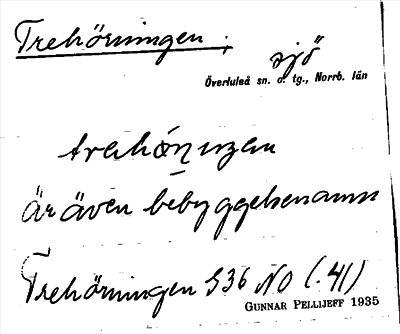 Trehörningen ;
sjö
Överluleå sn. o. tg., Norrb. län
Är även bebyggelsenamn
Trehörningen 936 NO (.41)
GUNNAR PELLIJEFF 1935